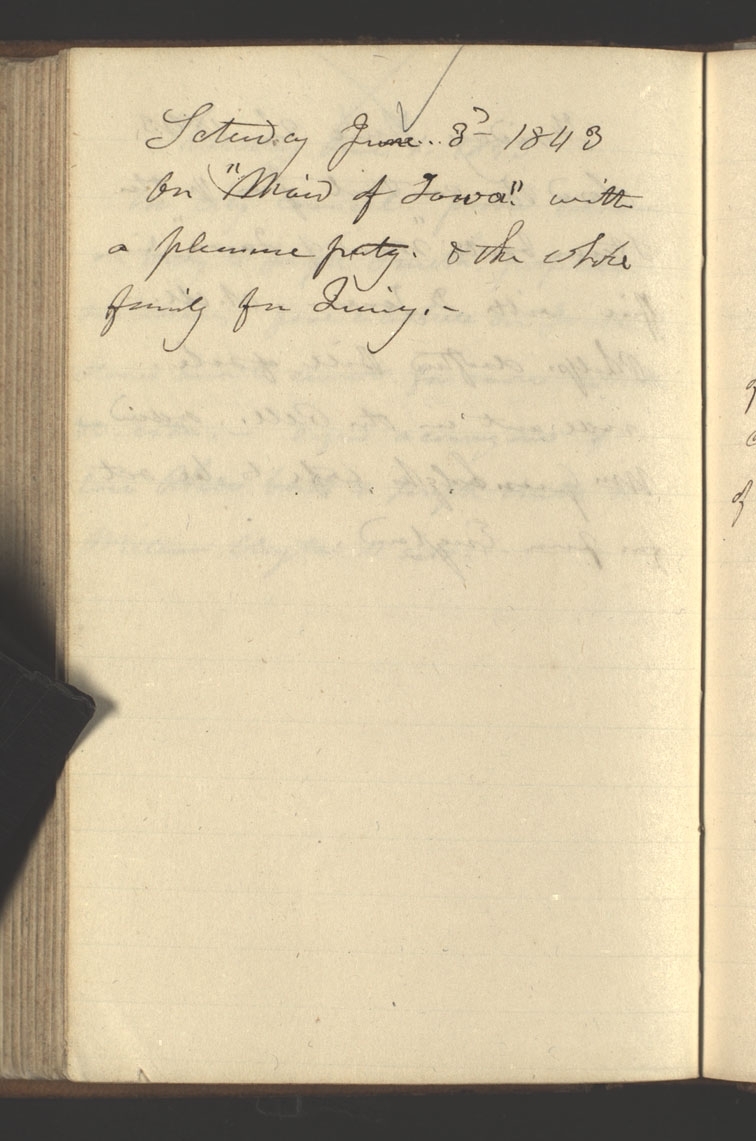 Saturday June. 3d- 1843
on "Maid of Iowa". with
a pleasure party. & the whole
family for Quincy.-